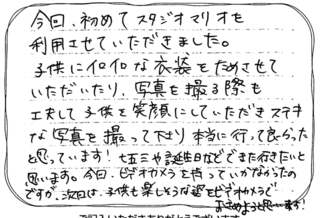 今回、初めてスタジオマリオを
利用させていただきました。
子供にイロイロな衣装をためさせて
いただいたり、写真を撮る際も
工夫して子供を笑顔にしていただきステキ
な写真を撮って下り本当に行って良かった
と思っています!七五三や誕生日などでまた行きたいと
思います。今回、ビデオカメラを持っていかなかった
のですが、次回は、子供も楽しそうな姿をビデオカメラで
おさめようと思います!
ご記入いただきありがとうございます